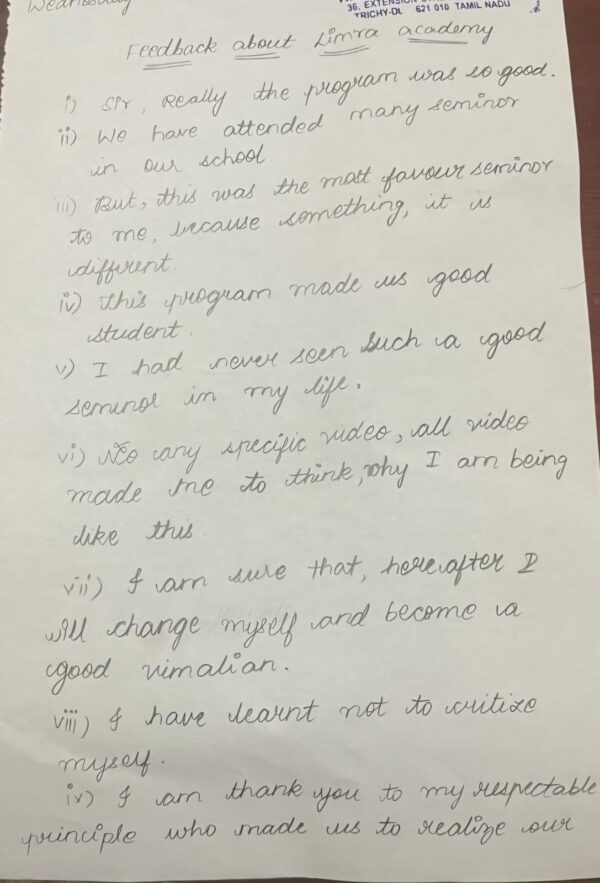 Wednesday
36, EXTENSION
TRICHY-DT. 621 010 TAMIL NADU
Feedback about Limra academy
i) Sir, Really the program was so good.
ii) We have attended many seminor
in our school
iii) But, this was the most favour seminor
to me, because something, it is
different.
iv) This program made us good
student.
v) I had never seen such a good
seminor in my life.
vi) No any specific video, all video
made me to think, why I am being
like this
vii) I am sure that, hereafter I
will change myself and become a
good vimalian.
viii) I have learnt not to critize
myself.
ix) I am thank you to my respectable
principle who made us to realize our